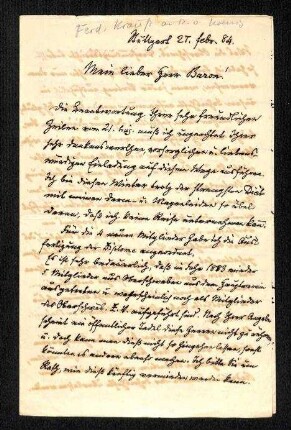 Stuttgart 27. Febr. 84.
Mein lieber Herr Baron!
Die Beantwortung Ihrer sehr freundlichen
Zeilen vom 21. muß ich ungeachtet Ihrer
sehr dankenswerthen, und liebens-
würdigen Einladung auf diesem Wege ausführen.
Ich bin diesen Winter trotz der strengsten Diät
mit meinen Darm- u. Magenleiden so übel
daran, daß ich keine Reise unternehmen kann.
Für die 4 neuen Mitglieder habe ich die Aus-
fertigung der Diplome angeordnet.
Es ist sehr bedauerlich, daß im Jahr 1883 wieder
5 Mitglieder aus Oberschwaben aus dem
ausgetreten u. wahrscheinlich noch als Mitglieder
des Oberschwäb. Z. V. aufgeführt sind. Nach Ihrer Angabe
scheint ein öffentlicher Tadel diese Herren nicht zu
u. doch kann man dieß nicht so hingehen lassen, sonst
könnten es andere ebenso machen. Ich bitte Sie um
Rath, wie dieß künftig vermieden werden kann.